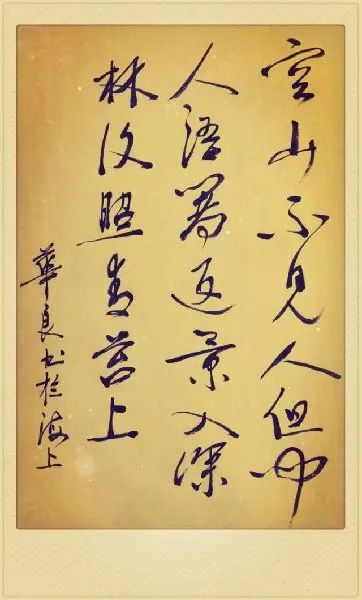 空山不見人但聞
人語響返景入深
林復照青苔上
華良書於海上